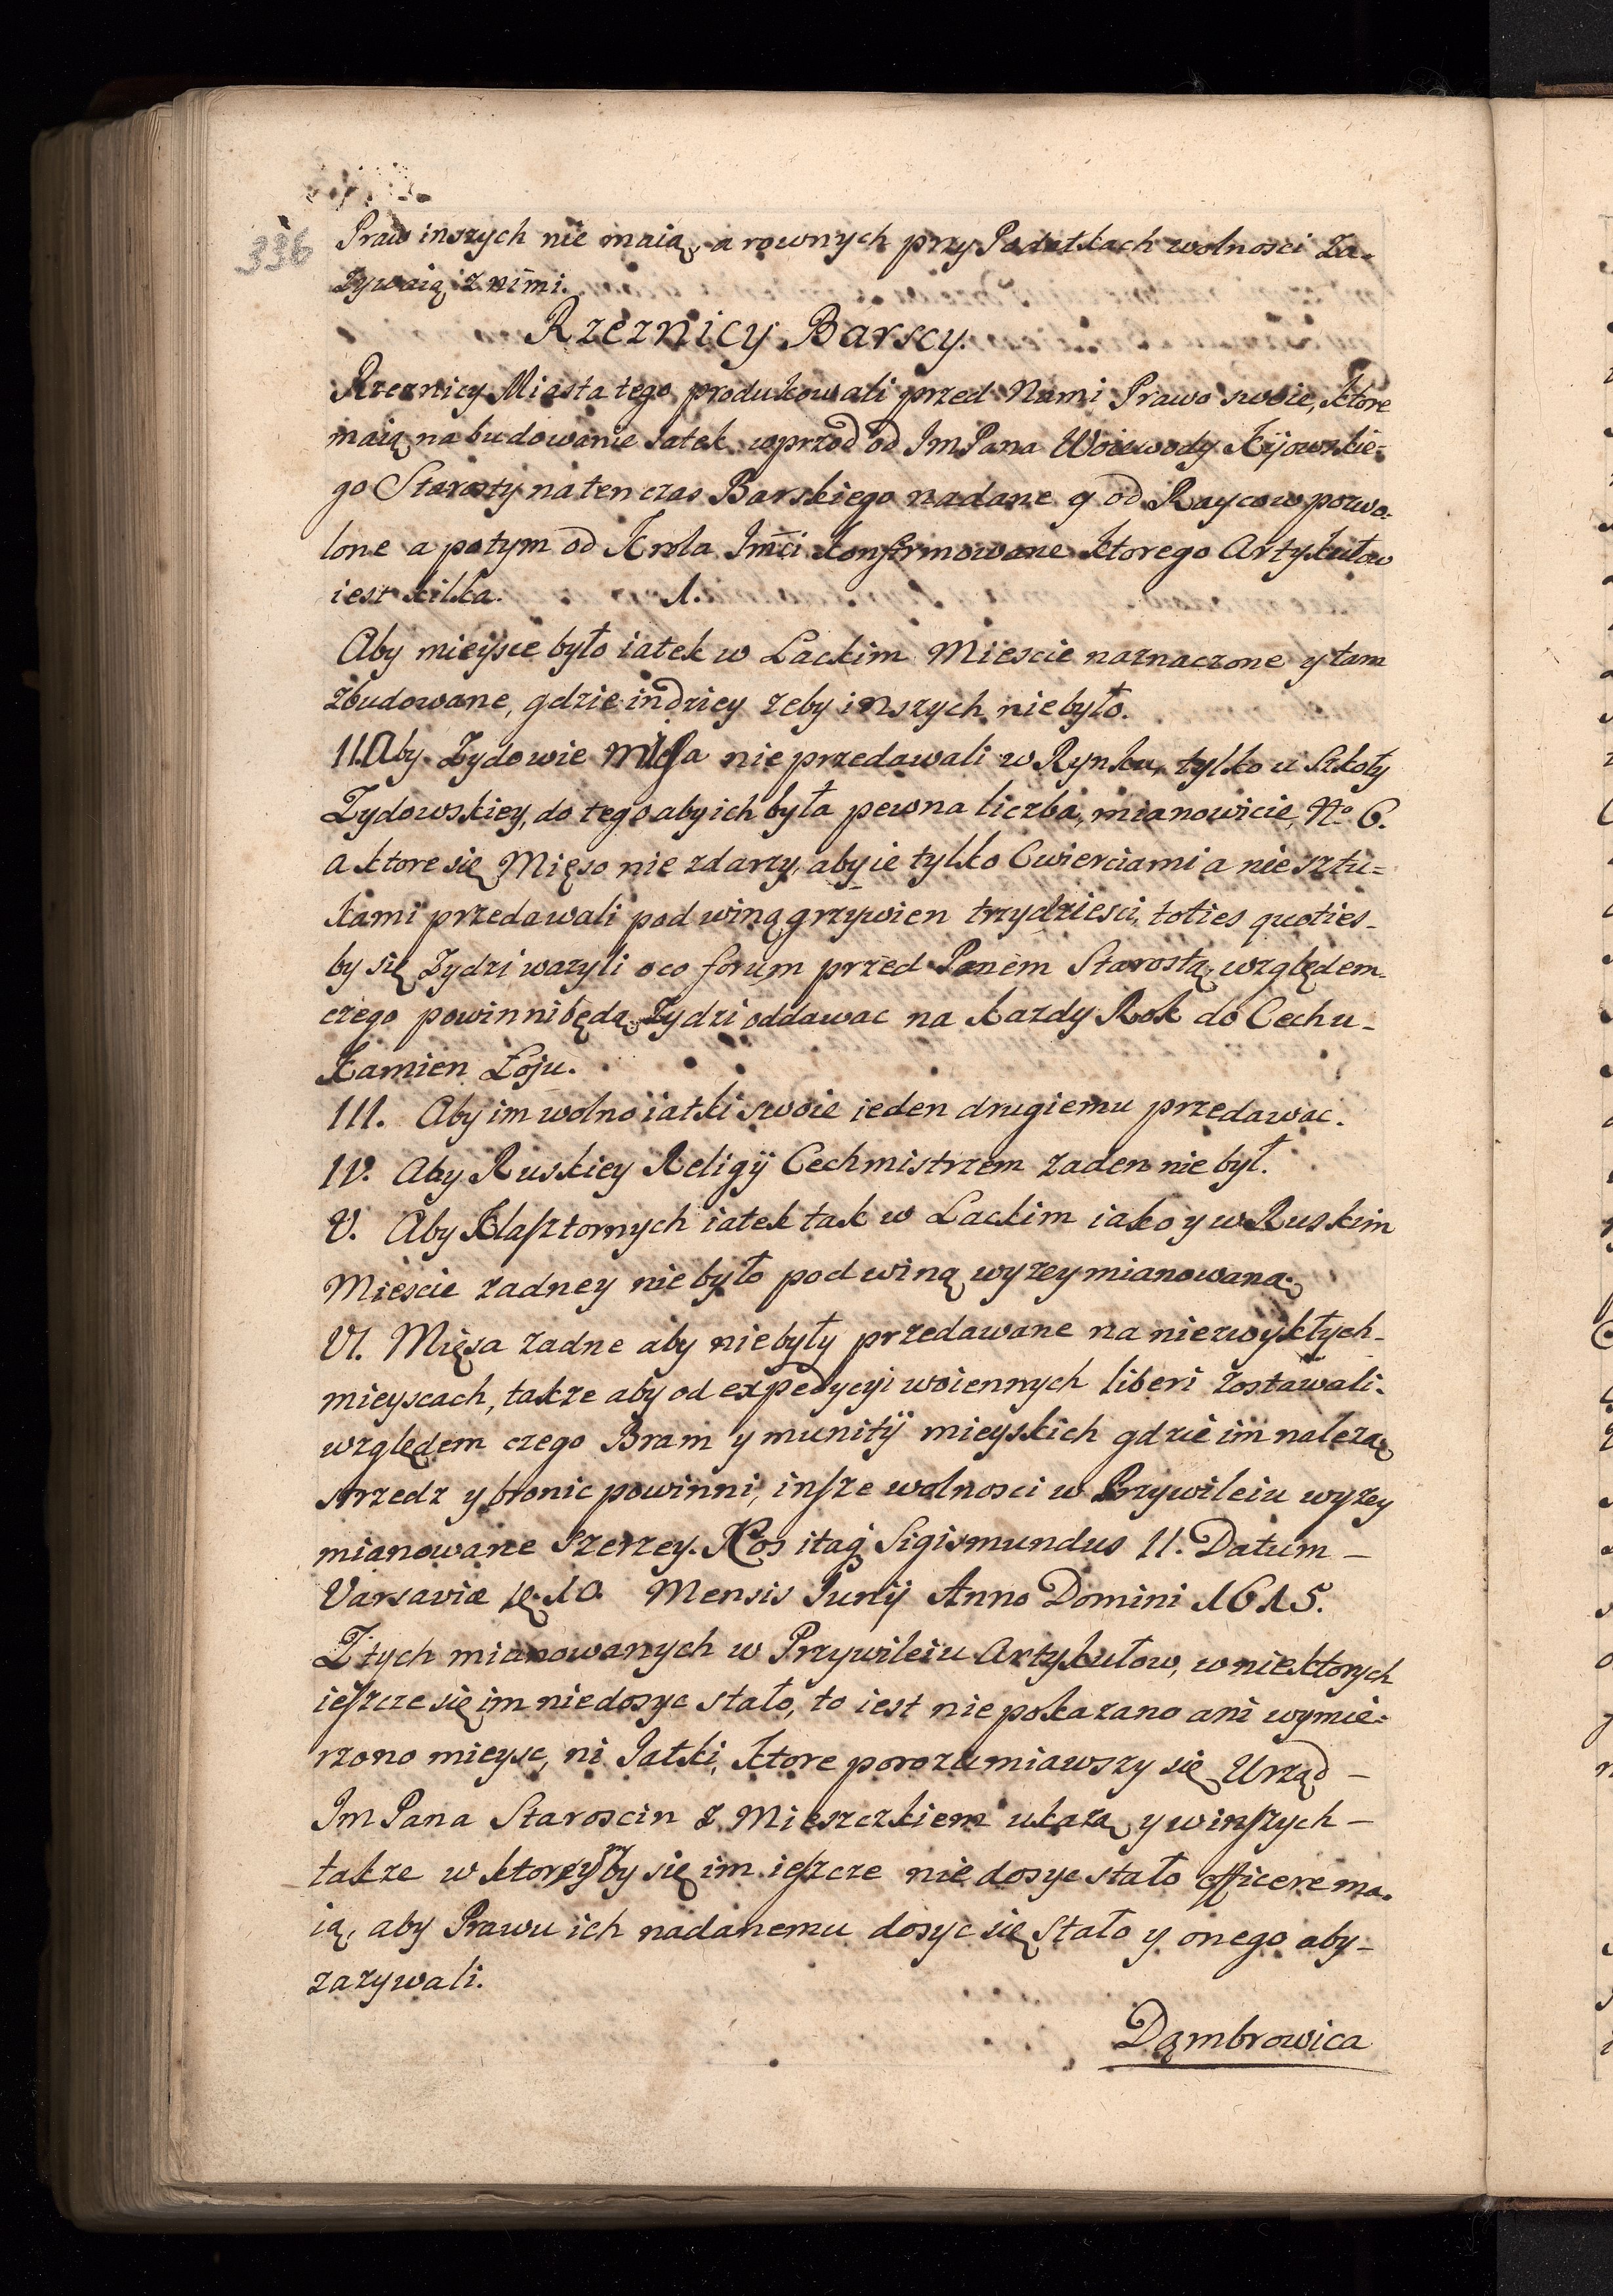 336
Praw inszych nie maią, a rownych przy Podatkach wolnosci za-
zywaią z nimi.
Rzeznicy Barscy.
Rzeznicy Miasta tego produkowali przed Nami Prawo swoie, ktore
maią na budowanie Jatek wprzod od JmPana Woiewody Kijowskie=
go Starosty na ten czas Barskiego nadane y od Raycow pozwo-
lone a potym od Krola Jmći konfirmowane ktorego Artykułow
iest kilka. 1.
Aby mieysce było iatek w Lackim Miescie naznaczone y tam
zbudowane, gdzie indziey zeby inszych nie było.
II. Aby Zydowie mięsa nie przedawali w Rynku, tylko u Szkoły
Zydowskiey, do tego aby ich była pewna liczba, mianowicie, No 6.
a ktore się Mięso nie zdarzy, aby ie tylko Cwierciami a nie sztu=
kami przedawali pod winą grzywien trzydziesci, toties quoties-
by się Zydzi wazyli o co forum przed Panem Starostą, względem-
czego powinni będą Zydzi oddawac na kazdy Rok do Cechu-
Kamien Łoju.
III. Aby im wolno iatki swoie ieden drugiemu przedawac.
IV. Aby Ruskiey Religij Cechmistrzem zaden nie był.
V. Aby Klasztornych iatek tak w Lackim iako y w Ruskim
Miescie zadney nie było pod winą wyzey mianowaną.
VI. Mięsa zadne aby nie były przedawane na niezwykłych-
mieyscach, takze aby od expedycyi woiennych liberi zostawali.
względem czego Bram y munitij mieyskich gdzie im nalezą
strzedz y bronic powinni, insze wolnosci w Przywileiu wyzey
mianowane szerzey. Nos itaq Sigismundus II. Datum-
Varsaviæ 10. Mensis Junij Anno Domini 1615.
Z tych mianowanych w Przywileiu Artykułow, w niektorych
ieszcze się im niedosyc stało, to iest nie pokazano ani wymie=
rzono mieysc, ni Jatki, ktore porozumiawszy się Urząd-
Jm Pana Staroscin z Mieszczkiem ukazą y w inszych-
takze w ktorymby się im ieszcze nie dosyc stało efficere ma-
ią, aby Prawu ich nadanemu dosyc się Stało y onego aby-
zazywali.
Dąmbrowica